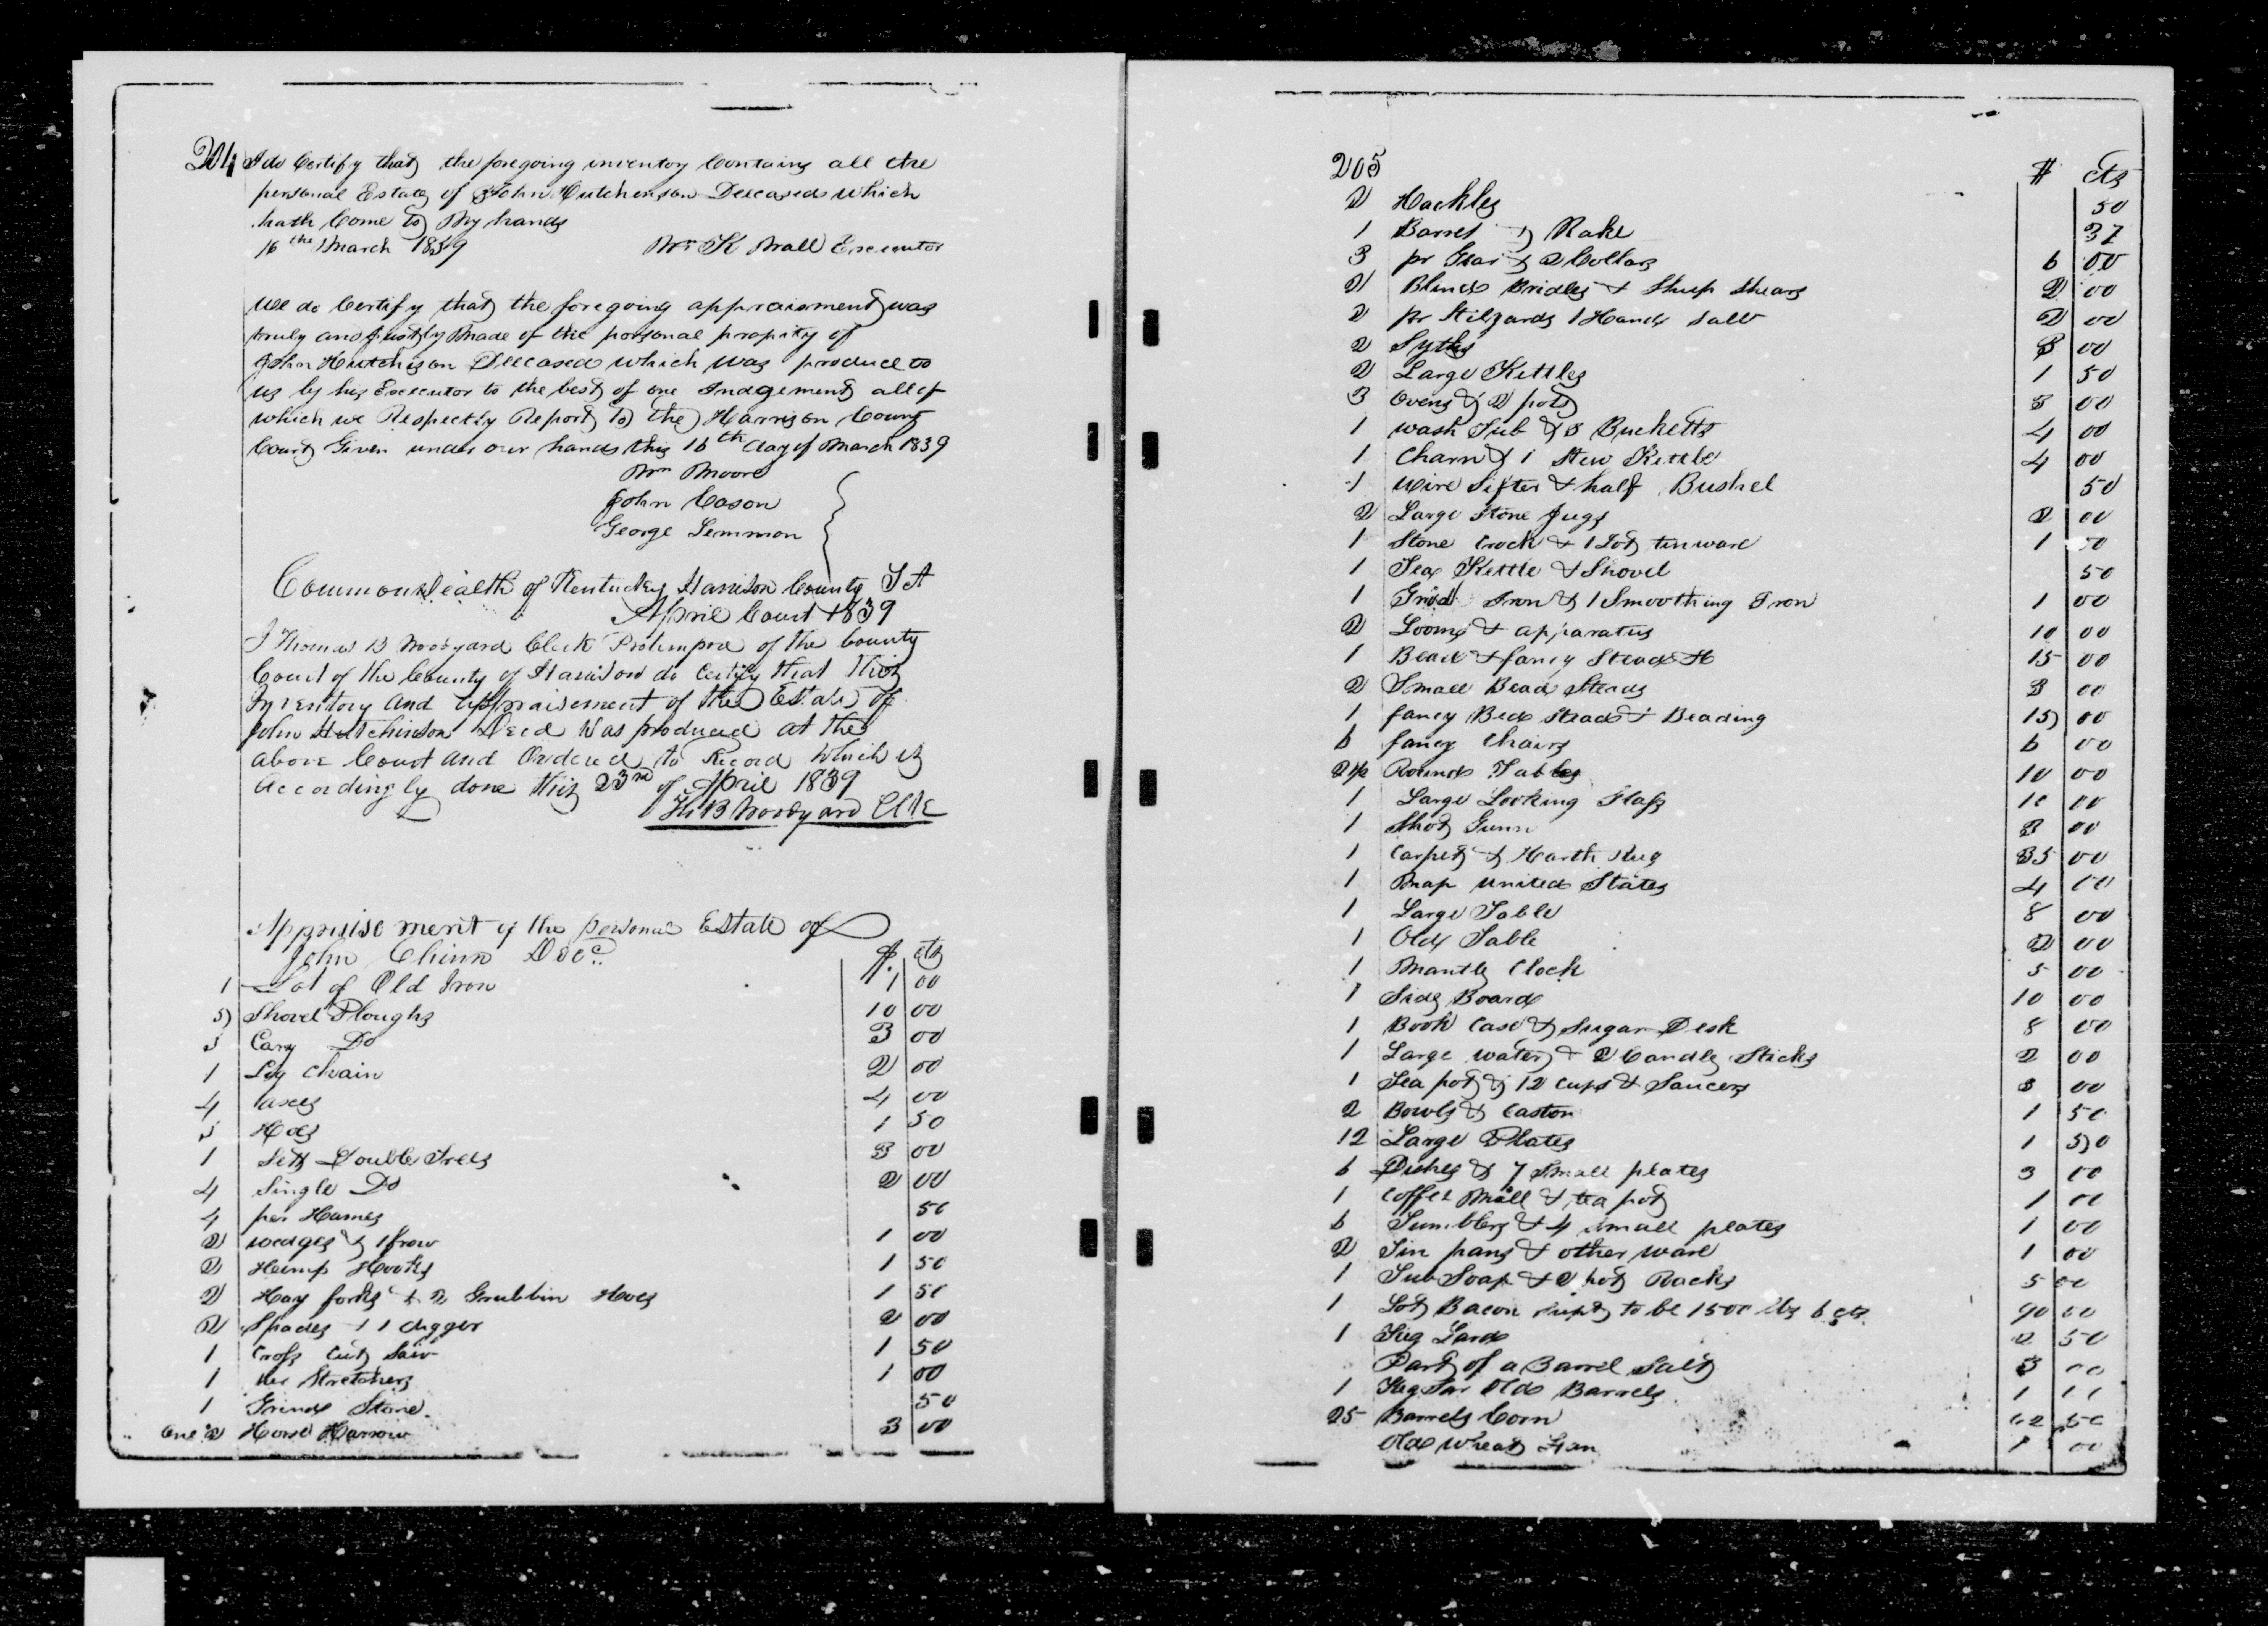 204 I do Certify that the foregoing inventory Contains all the
personal Estate of John Hutchenson Deceased which
hath Come to My hands
16th March 1839 Wm K Wall Executor
We do Certify that the foregoing appraisment was
truly and Justly Made of the personal propity of
John Hutchison Deceased which was produce to
us by his Executor to the best of one Judgement all of
which we Respectly Report to the Harrison County
Court Given under our hands this 16th day of March 1839
Wm Moore
John Cason
George Lemmon
Commonwealth of Kentucky Harrison County Sct
April Court 1839
I Thomas B Woodyard Clerk Protempore of the County
Court of the County of Harrison do Certify that this
Inventory and Appraisement of the Estate of
John Hutchinson Decd Was produced at the
above Court and Ordered to Record which is
Accordingly done this 23rd of April 1839
Th. B Woodyard Clk
Appraisement of the personal Estate of
John Chinn Decd $ cts
1 Lot of Old Iron 1 00
5 Shovel Ploughs 10 00
3 Cary Do 3 00
1 Log Chain 2 00
4 axes 4 00
5 Hoes 1 50
1 Sett Double Trees 3 00
4 Single Do 2 00
4 per Hames 50
2 wedges & 1 frow 1 00
2 Hemp Hooks 1 50
2 Hay forks & 2 Grubbin Hoes 1 50
2 Spades & 1 digger 2 00
1 Cross Cut Saw 1 50
1 Stretchers 1 00
1 Grind Stone 50
One 2 Horse Harrow 3 00
205 $ cts
2 Hackles 50
1 Barrel & Rake 37
3 pr Gear & 2 Collars 6 00
2 Blind Bridles & Sheep Shears 2 00
2 pr Stilyards 1 Hand Saw 2 00
2 Syths 3 00
2 Large Kettles 1 50
3 Ovens & 2 pots 3 00
1 wash Tub & 3 Bucketts 4 00
1 Charn & 1 Stew Kettle 4 00
1 wire Sifter & half Bushel 50
2 Large Stone Jugs 2 00
1 Stone Crock & 1 Lot tinware 1 50
1 Tea Kettle & Shovel 50
1 Grid Iron & 1 Smoothing Iron 1 00
2 Looms & apparatus 10 00
1 Bead & fancy Stead 15 00
2 Small Bead Steads 3 00
1 fancy Bed Stead & Beading 15 00
6 fancy Chairs 6 00
2 1/2 Round Tables 10 00
1 Large Looking Glass 10 00
1 Shot Gunn 3 00
1 Carpet & Harth Rug 35 00
1 Map United States 4 00
1 Large Table 8 00
1 Old Table 2 00
1 Mantle Clock 5 00
1 Side Board 10 00
1 Book Case & Sugar Desk 8 00
1 Large water & 2 Candle Sticks 2 00
1 Tea pot & 12 cups & Saucers 3 00
2 Bowls & Caston 1 50
12 Large Plates 1 50
6 Dishes & 7 Small plates 3 00
1 Coffee Mill & tea pot 1 00
6 Tumblers & 4 small plates 1 00
2 Tin pans & other ware 1 00
1 Tub Soap & 2 pot Racks 5 00
1 Lot Bacon supt to be 1500 lbs 6 cts 90 00
1 Keg Lard 2 50
Part of a Barrel Salt 3 00
1 Keg Tar Old Barrels 1 00
25 Barrels Corn 62 50
Old Wheat Fan 1 00